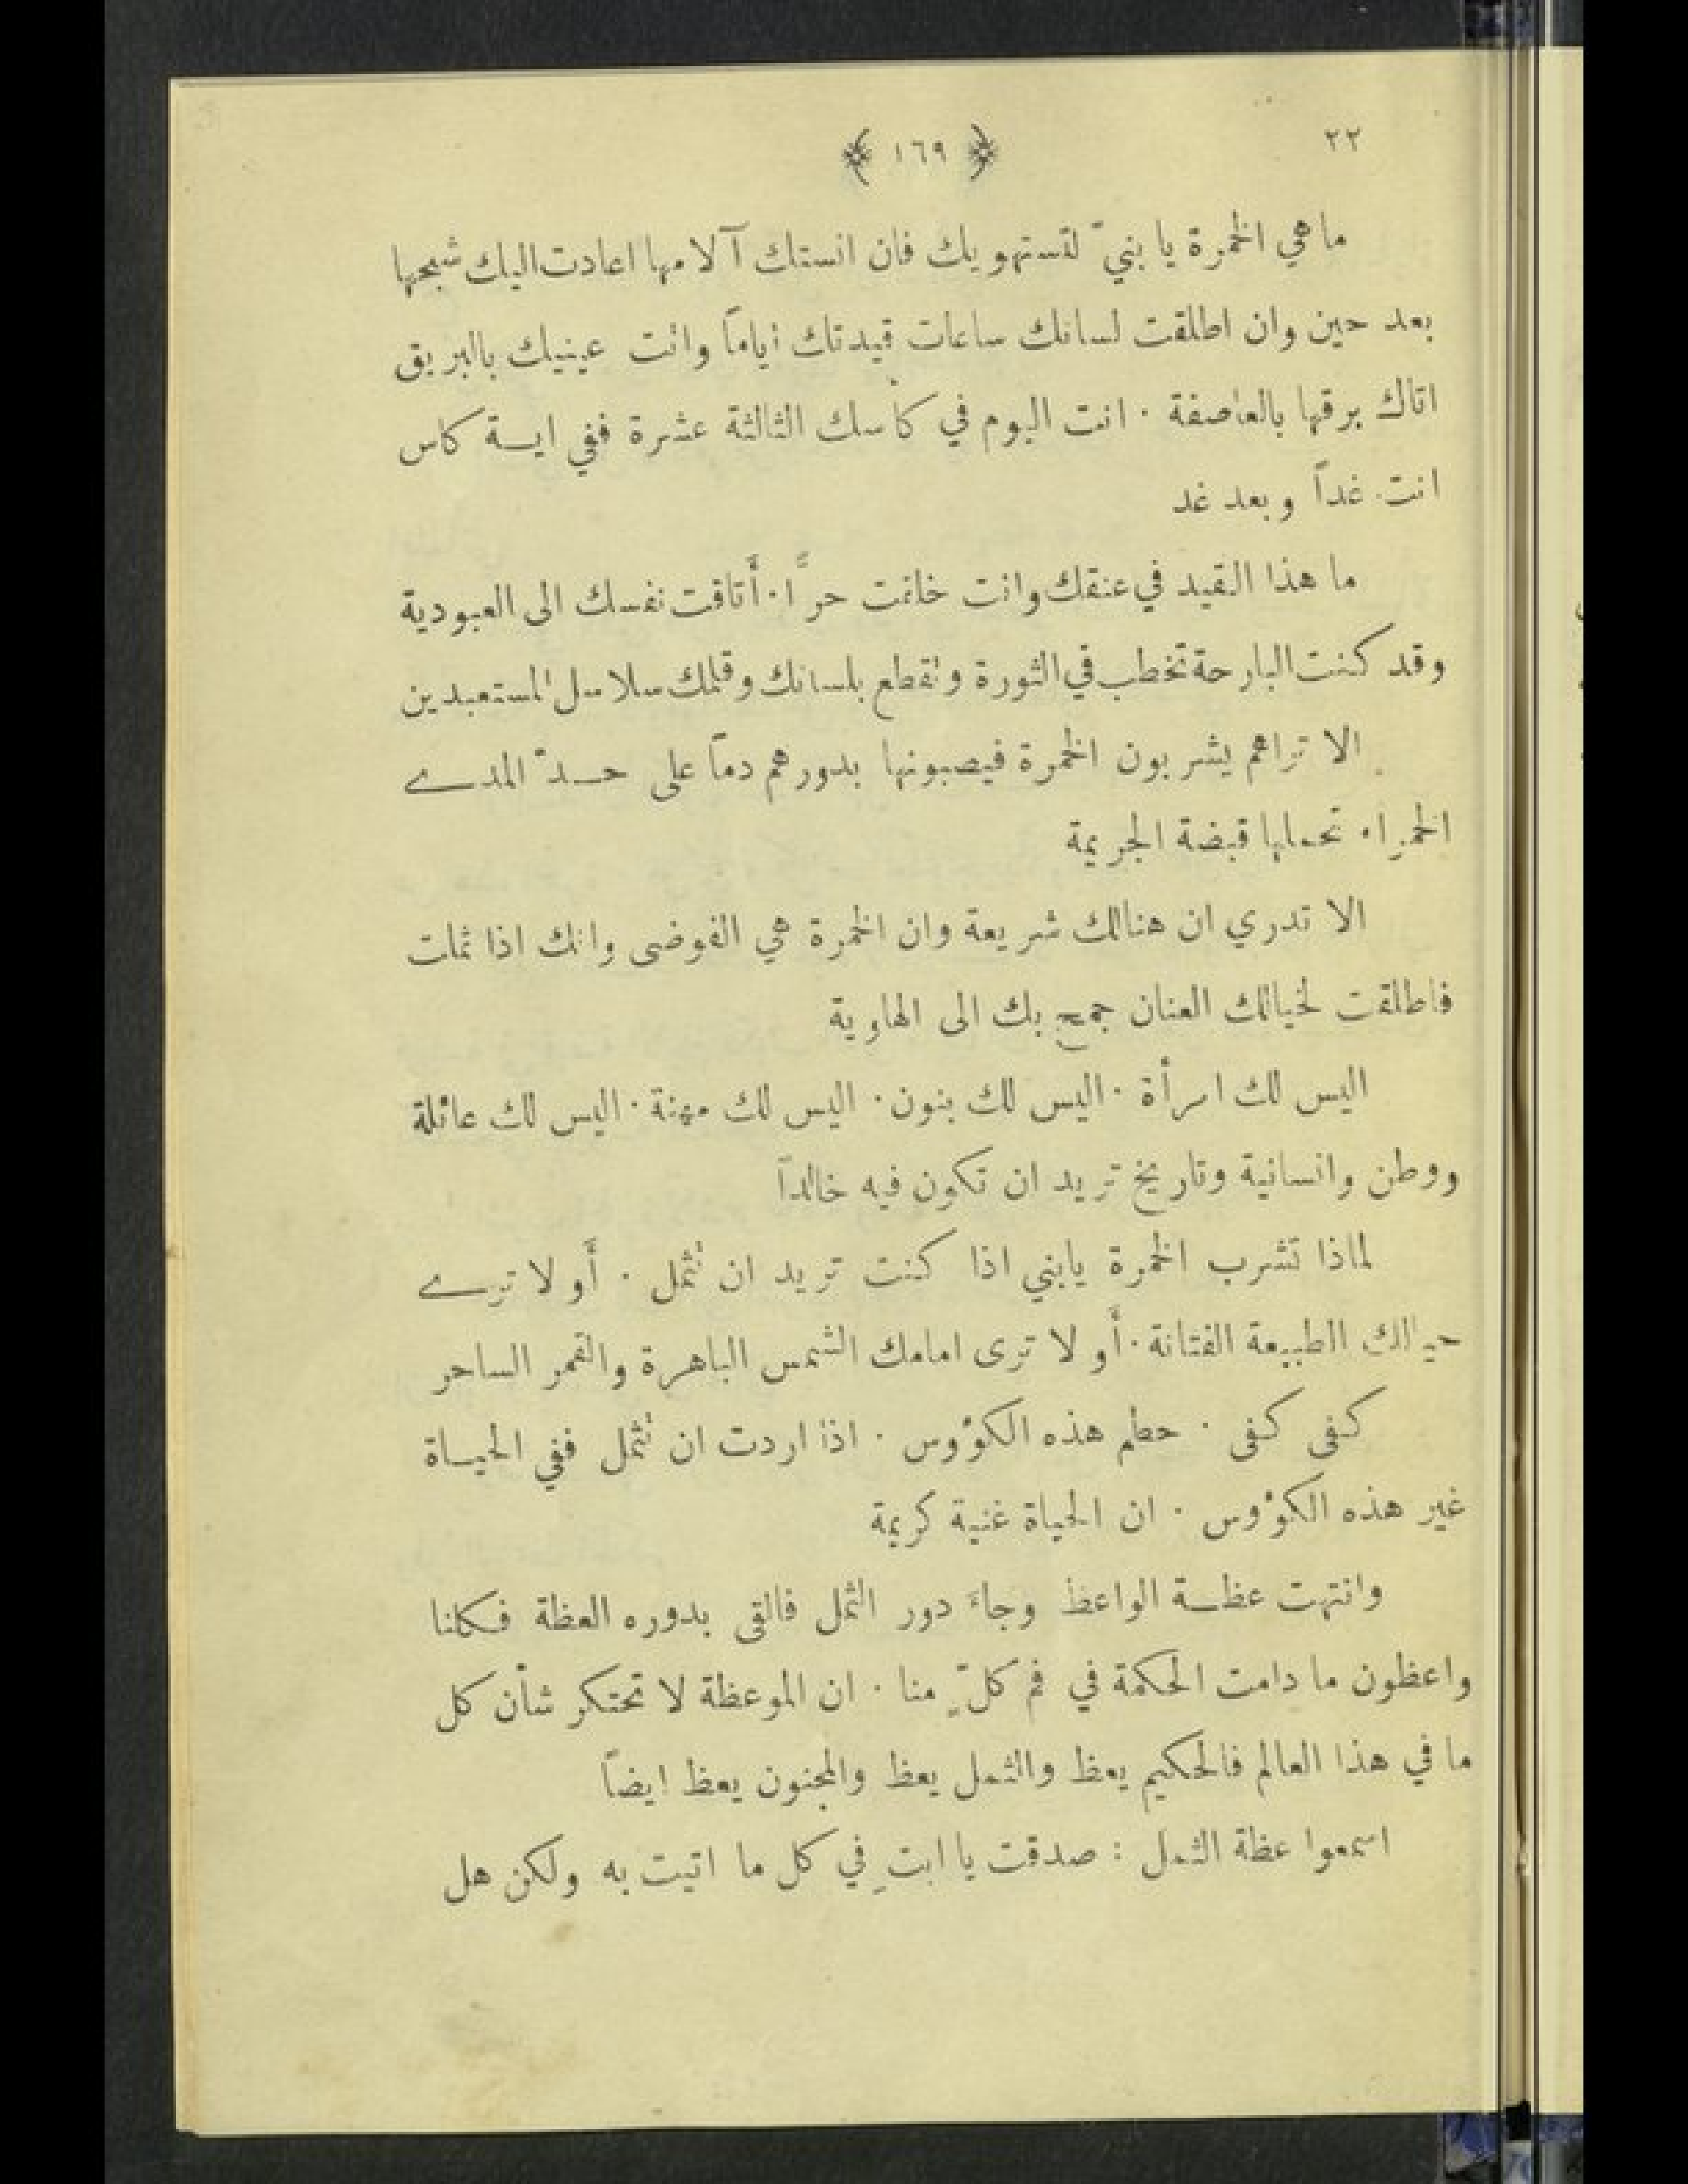 ٢٢
﴿ ١٦٩ ﴾
ما هي الخمرة يا بنيّ لتستهويك فان انستك آلامها اعادت اليك شبحها
بعد حين وان اطلقت لسانك ساعات قيدتك اياماً واتت عينيك بالبريق
اتاك برقها بالعاصفة . انت اليوم في كأسك الثالثة عشرة ففي اية كاس
انت غداً وبعد غد
ما هذا القيد في عنقك وانت خلقت حرًّا . أتاقت نفسك الى العبودية
وقد كنت البارحة تخطب في الثورة وتقطع بلسانك وقلمك سلاسل المستعبدين
الا تراهم يشربون الخمرة فيصبونها بدورهم دماً على حدّ المدى
الحمراء تحملها قبضة الجريمة
الا تدري ان هنالك شريعة وان الخمرة هي الفوضى وانك اذا ثملت
فاطلقت لخيالك العنان جمح بك الى الهاوية
اليس لك امرأة . اليس لك بنون . اليس لك مهنة . اليس لك عائلة
ووطن وانسانية وتاريخ تريد ان تكون فيه خالداً
لماذا تشرب الخمرة يابني اذا كنت تريد ان تثمل . أَو لا ترى
حيالك الطبيعة الفتانة . أَو لا ترى امامك الشمس الباهرة والقمر الساحر
كفى كفى . حطم هذه الكؤوس . اذا اردت ان تثمل ففي الحياة
غير هذه الكؤوس . ان الحياة غنية كريمة
وانتهت عظة الواعظ وجاءَ دور الثمل فالقى بدوره العظة فكلنا
واعظون ما دامت الحكمة في فم كلّ منا . ان الموعظة لا تحتكر شأن كل
ما في هذا العالم فالحكيم يعظ والثمل يعظ والمجنون يعظ ايضاً
اسمعوا عظة الثمل : صدقت يا ابتِ في كل ما اتيت به ولكن هل